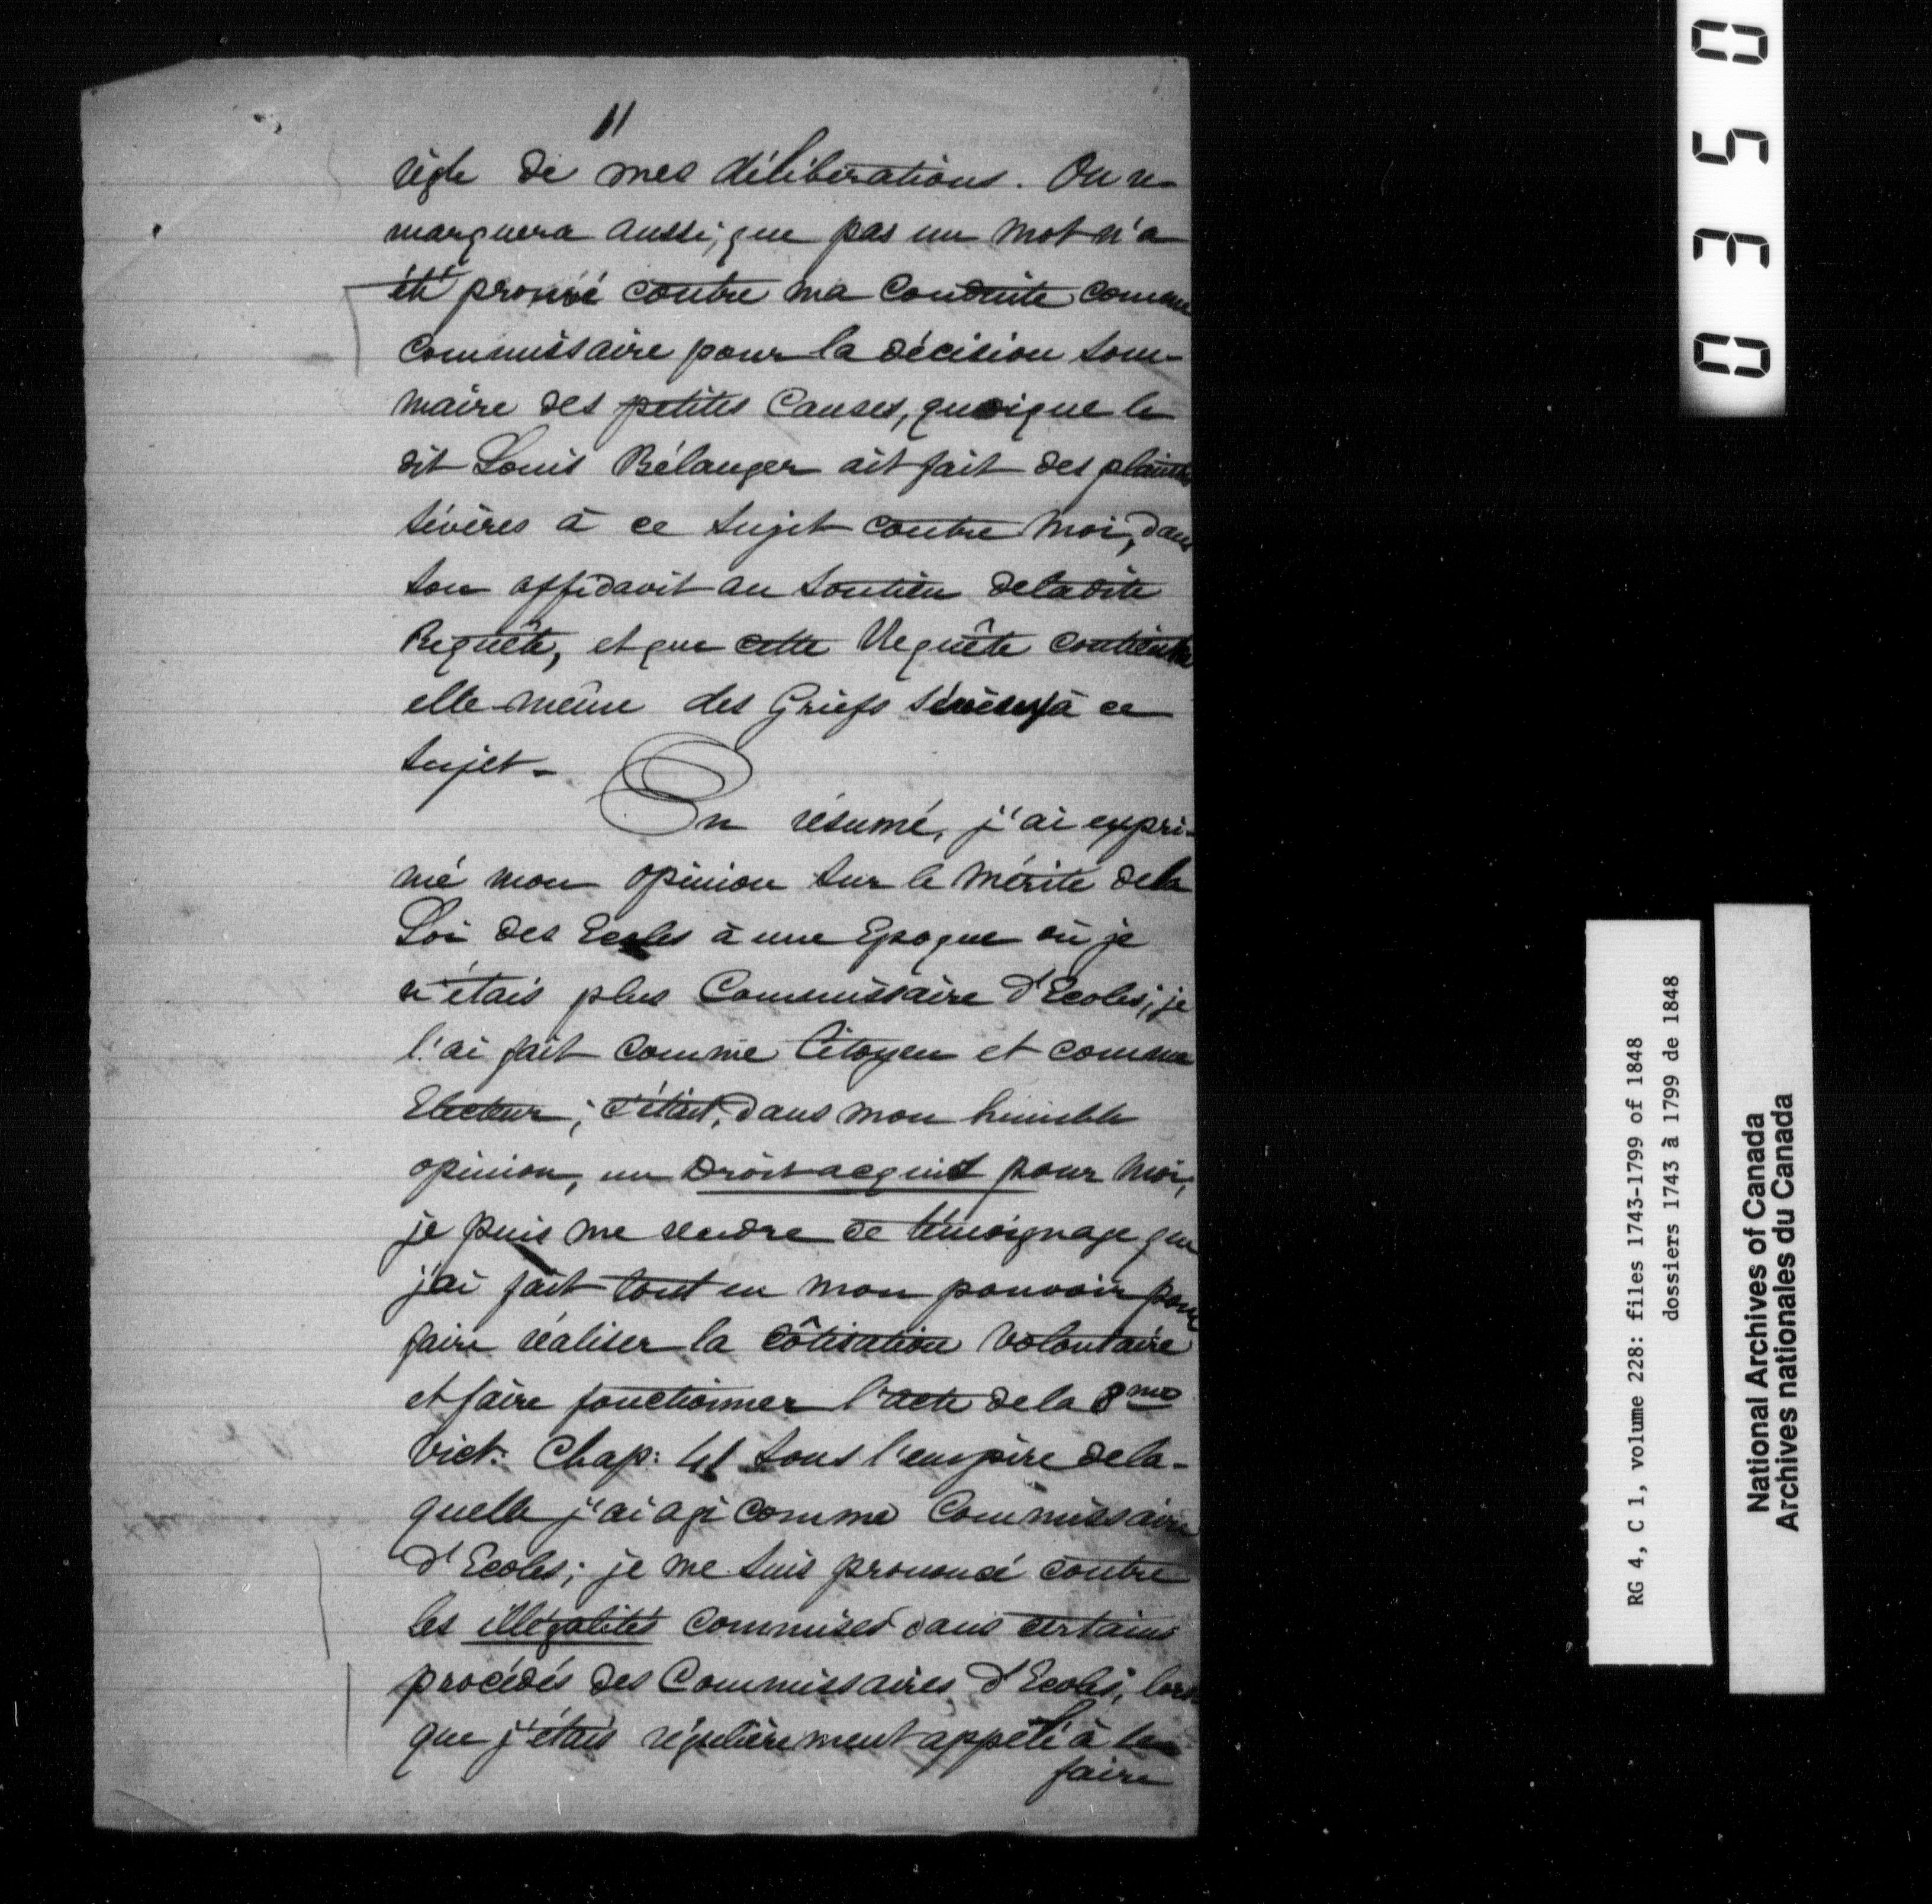 11
règle de mes délibérations. On re-
marquera aussi, que pas un mot n'a
été prouvé contre ma conduite comme
Commissaire pour la décision som-
maire des petites Causes, quoique le
dit Louis Bélanger ait fait des plaintes
sévères à ce sujet contre moi, dans
son affidavit au soutien de la dite
Requête, et que cette Requête contienne
elle-même des Griefs sévères à ce
sujet.
En résumé, j'ai expri-
mé mon opinion sur le mérite de la
Loi des Ecoles à une Epoque où je
n'étais plus Commissaire d'Ecoles; je
l'ai fait comme Citoyen et comme
Electeur; c'était, dans mon humble
opinion, un Droit acquis pour moi,
je puis me rendre ce témoignage que
j'ai fait tout en mon pouvoir pour
faire réaliser la côtisation volontaire
et faire fonctionner l'acte de la 8me
Vict: Chap: 41 sous l'empire de la-
quelle j'ai agi comme Commissaire
d'Ecoles; je me suis prononcé contre
les illégalités commises dans certains
procédés des Commissaires d'Ecoles, lors
que j'étais régulièrement appelé à le
faire
0350
RG 4, C 1, volume 228: files 1743-1799 of 1848
dossiers 1743 à 1799 de 1848
National Archives of Canada
Archives nationales du Canada